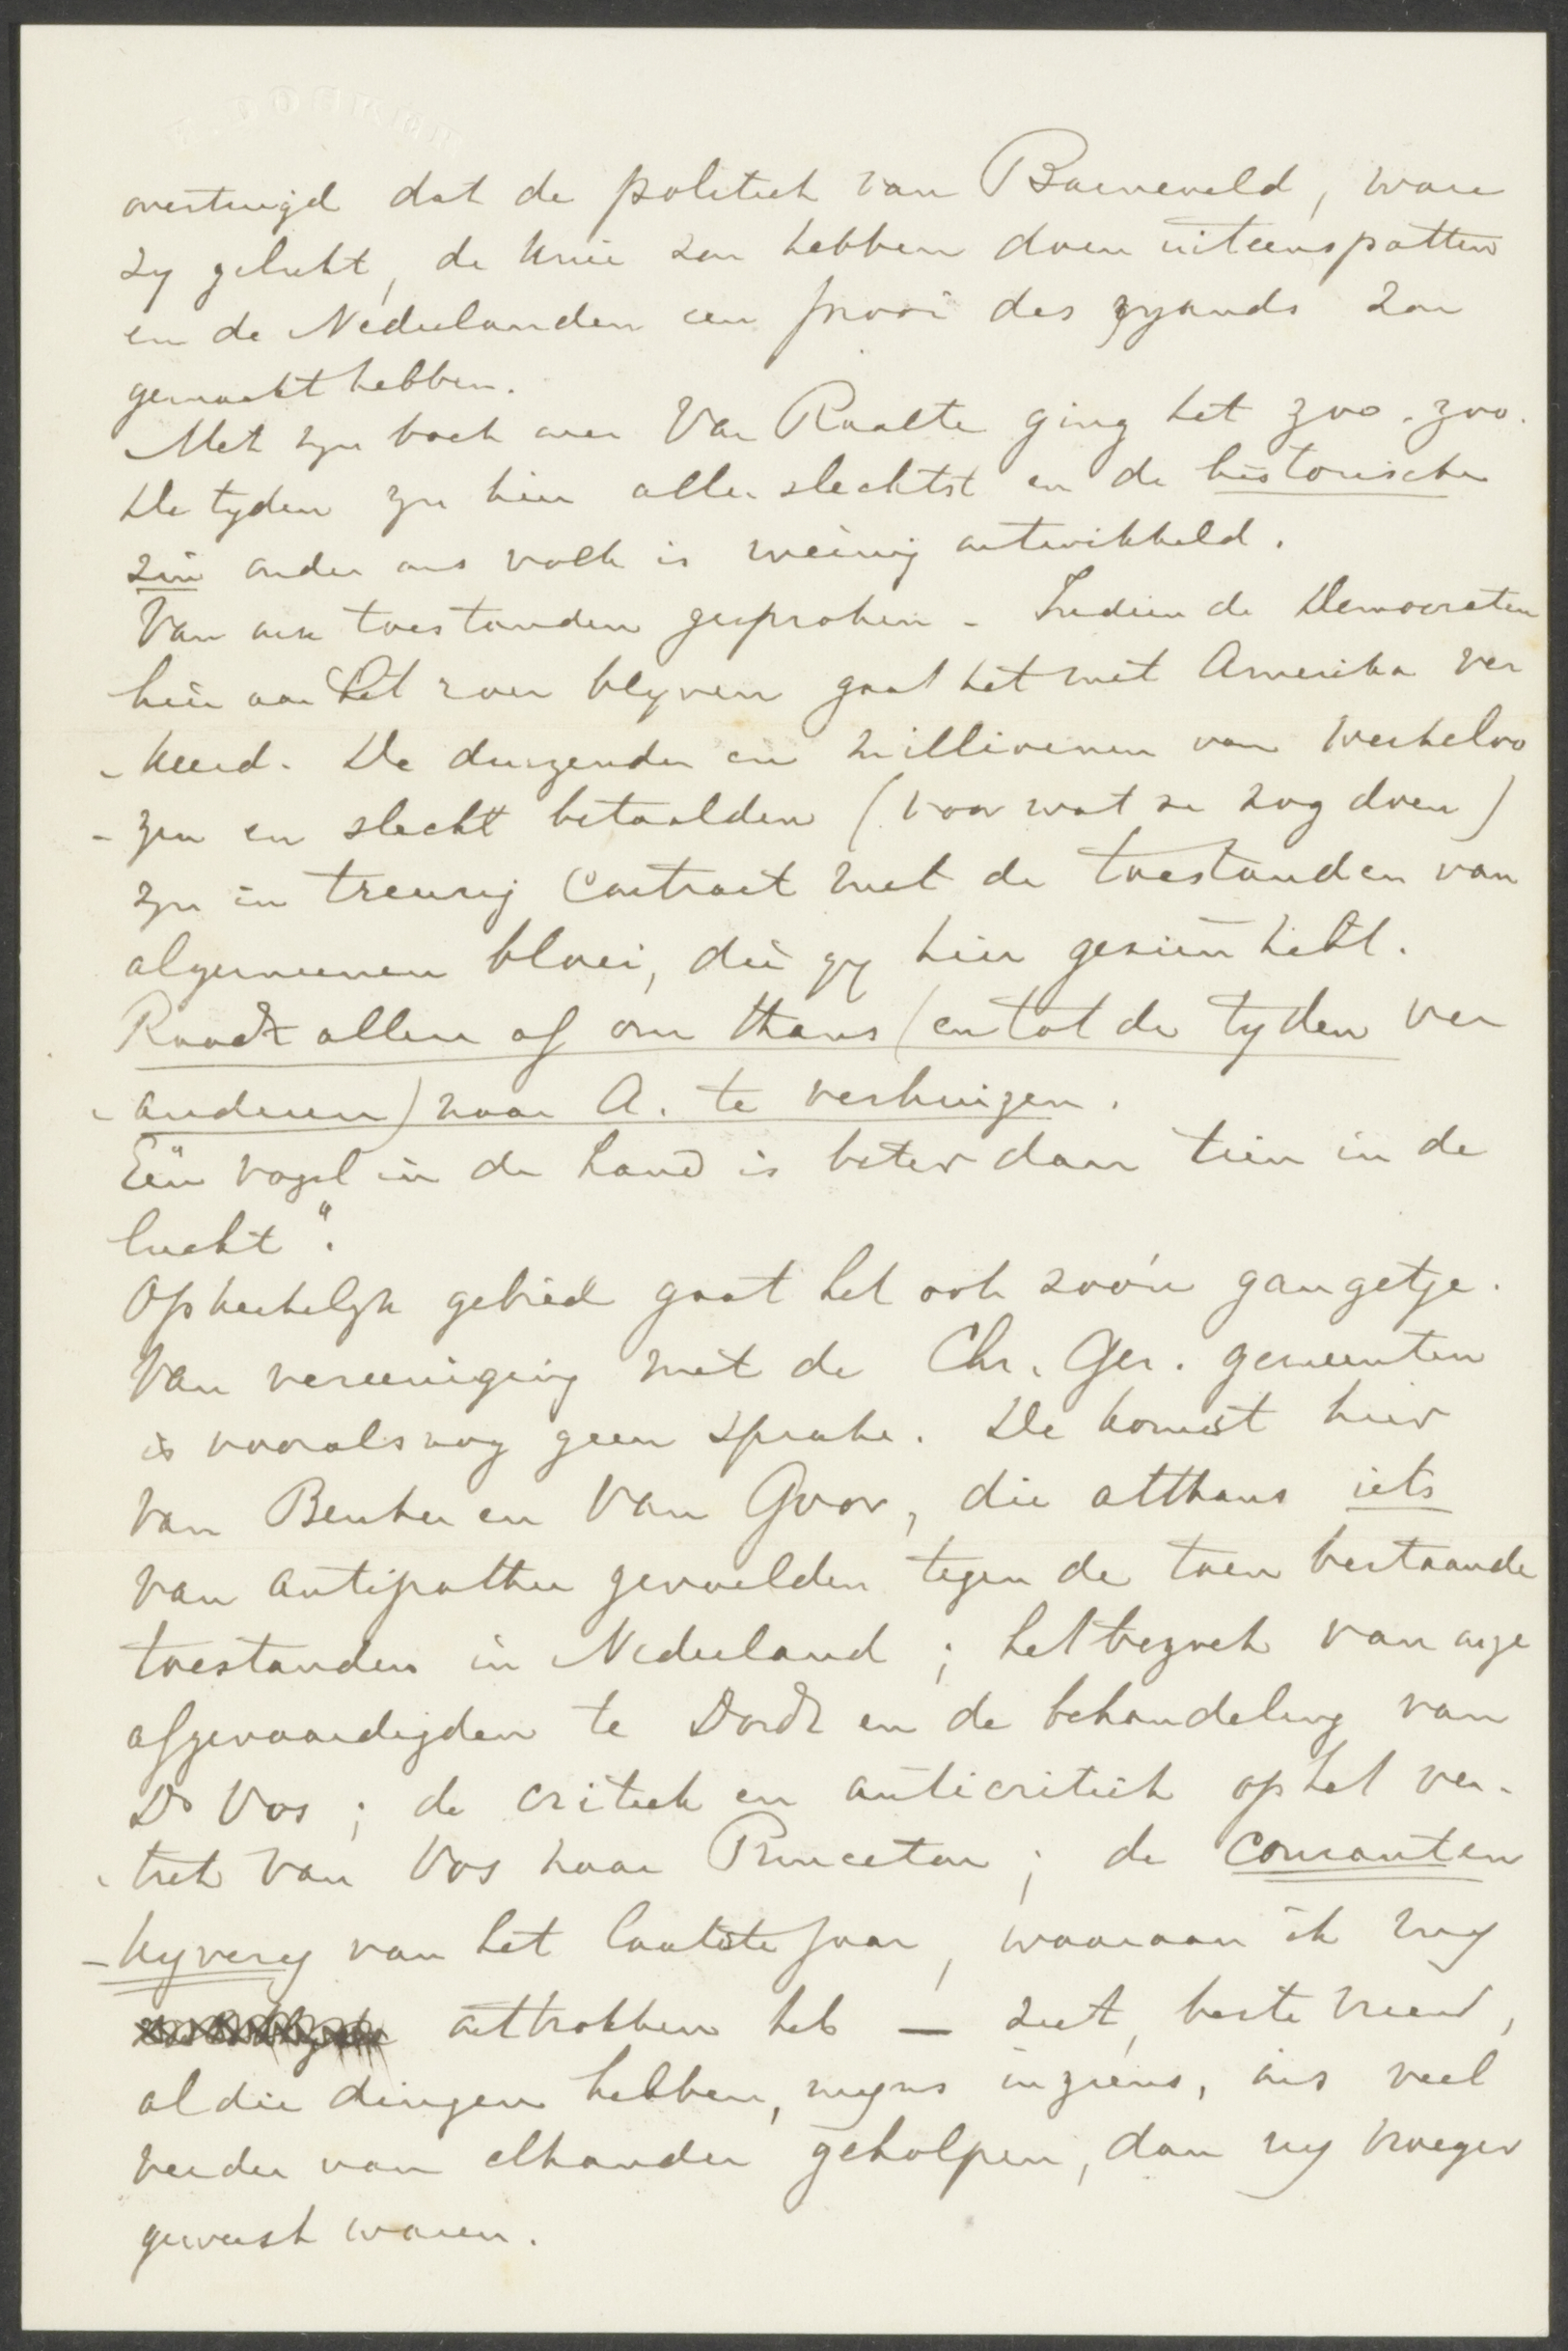 overtuigd dat de politiek van Barneveld, ware
zy gelukt, de Unie zou hebben doen uiteenspatten
en de Nederlanden een prooi des vyands zou
gemaakt hebben.
Met myn boek over Van Raalte ging het zoo-zoo.
De tyden zyn hier aller slechtst en de historische
zin onder ons volk is weinig ontwikkeld.
Van onze toestanden gesproken - Indien de Democraten
hier aan het roer blyven gaat het met Amerika ver
-keerd. De duizenden en millioenen van werkeloo
-zen en slecht betaalden (voor wat ze nog doen)
zyn in treurig contrast met de toestanden van
algemeenen bloei, die gy hier gezien hebt.
Raadt allen af om thans (en tot de tyden ver
-anderen) naar A. te verhuizen.
Eén vogel in de hand is beter dan tien in de
lucht".
Op kerkelyk gebied gaat het ook zoo'n gangetje.
Van vereeniging met de Chr. Ger. gemeenten
is vooralsnog geen sprake. De komst hier
van Beuker en Van Goor, die althans iets
van antipathie gevoelden tegen de toen bestaande
toestanden in Nederland; het bezoek van onze
afgevaardigden te Dordt en de behandeling van
Ds Vos; de critiek en anticritiek op het ver-
-trek van Vos naar Princeton; de couranten
-kyvery van het laatste jaar, waaraan ik my
onttrokken heb — ziet, beste vriend,
al die dingen hebben, myns inziens, ons veel
verder van elkander geholpen, dan wy vroeger
geweest waren.